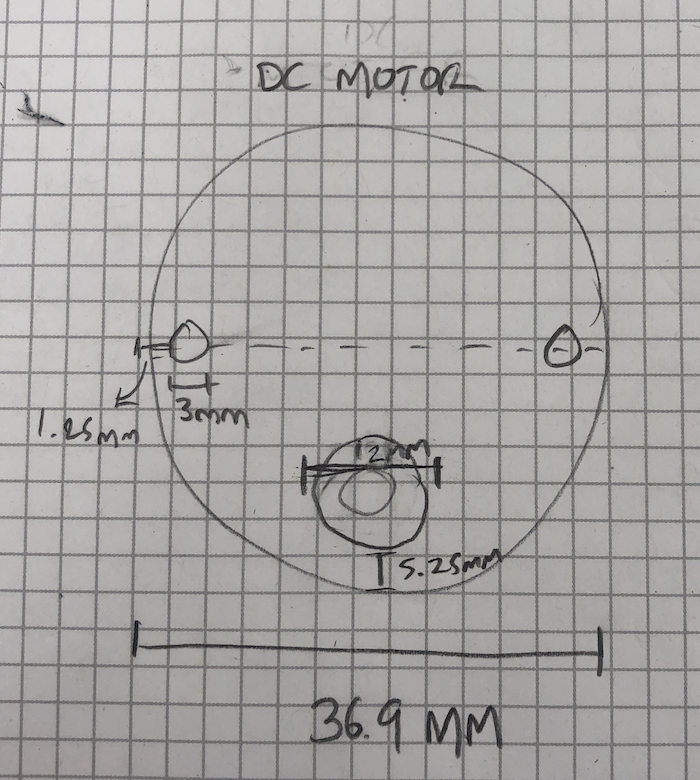 DC MOTOR
12mm
3mm
1.25mm
5.25mm
36.9 MM